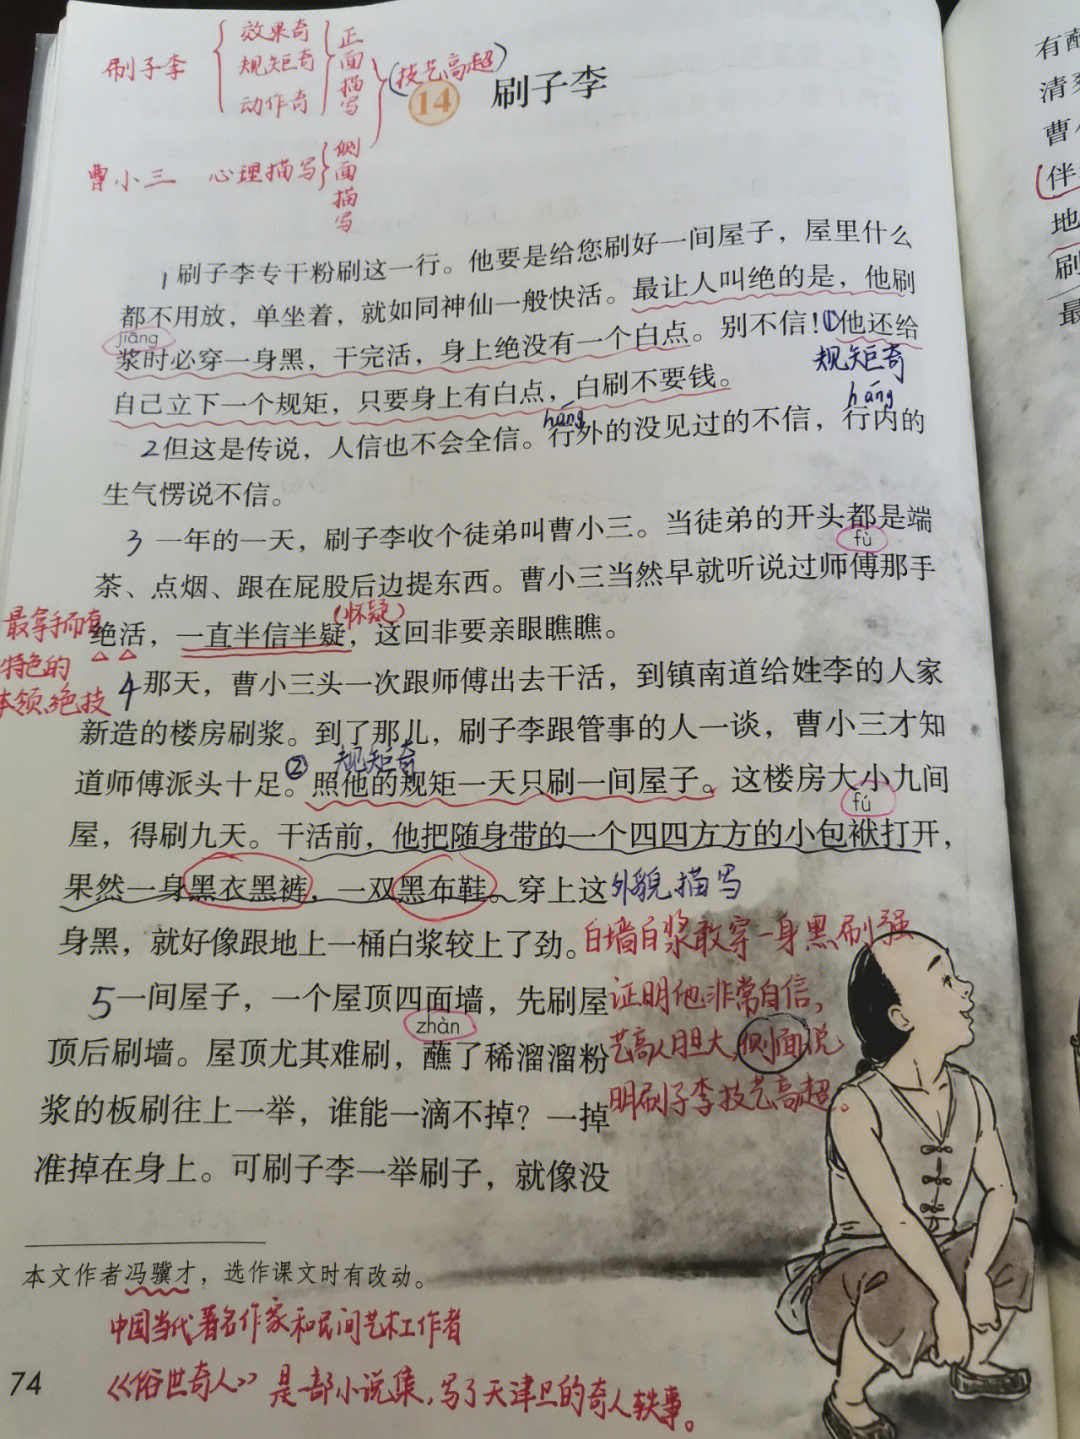 刷子李
效果奇
规矩奇
动作奇
正面描写
(技艺高超)
14 刷子李
曹小三 心理描写
侧面描写
1刷子李专干粉刷这一行。他要是给您刷好一间屋子，屋里什么
都不用放，单坐着，就如同神仙一般快活。最让人叫绝的是，他刷
jiāng
浆时必穿一身黑，干完活，身上绝没有一个白点。别不信！①他还给
规矩奇
自己立下一个规矩，只要身上有白点，白刷不要钱。
háng
háng
2但这是传说，人信也不会全信。行外的没见过的不信，行内的
生气愣说不信。
3一年的一天，刷子李收个徒弟叫曹小三。当徒弟的开头都是端
fù
茶、点烟、跟在屁股后边提东西。曹小三当然早就听说过师傅那手
(怀疑)
绝活，一直半信半疑，这回非要亲眼瞧瞧。
最拿手而有
特色的
本领、绝技
4那天，曹小三头一次跟师傅出去干活，到镇南道给姓李的人家
新造的楼房刷浆。到了那儿，刷子李跟管事的人一谈，曹小三才知
②规矩奇
道师傅派头十足。照他的规矩一天只刷一间屋子。这楼房大小九间
fú
屋，得刷九天。干活前，他把随身带的一个四四方方的小包袱打开，
果然一身黑衣黑裤，一双黑布鞋。穿上这
外貌描写
身黑，就好像跟地上一桶白浆较上了劲。
白墙白浆敢穿一身黑刷强
证明他非常自信，
艺高人胆大，侧面说
明刷子李技艺高超。
5一间屋子，一个屋顶四面墙，先刷屋
zhàn
顶后刷墙。屋顶尤其难刷，蘸了稀溜溜粉
浆的板刷往上一举，谁能一滴不掉？一掉
准掉在身上。可刷子李一举刷子，就像没
本文作者冯骥才，选作课文时有改动。
中国当代著名作家和民间艺术工作者
《俗世奇人》是一部小说集，写了天津卫的奇人轶事。
74
有蘸
清爽
曹小
伴
地
刷
最